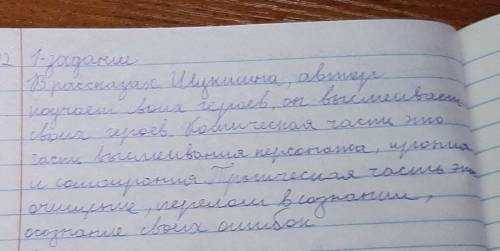 1-задание
В рассказах Шукшина, автор
поучает своих героев, он высмеивает
своих героев. Комическая часть это
часть высмеивания персонажа, ирония
и самоирония. Трагическая часть это
очищение, перелом в сознании,
осознание своих ошибок